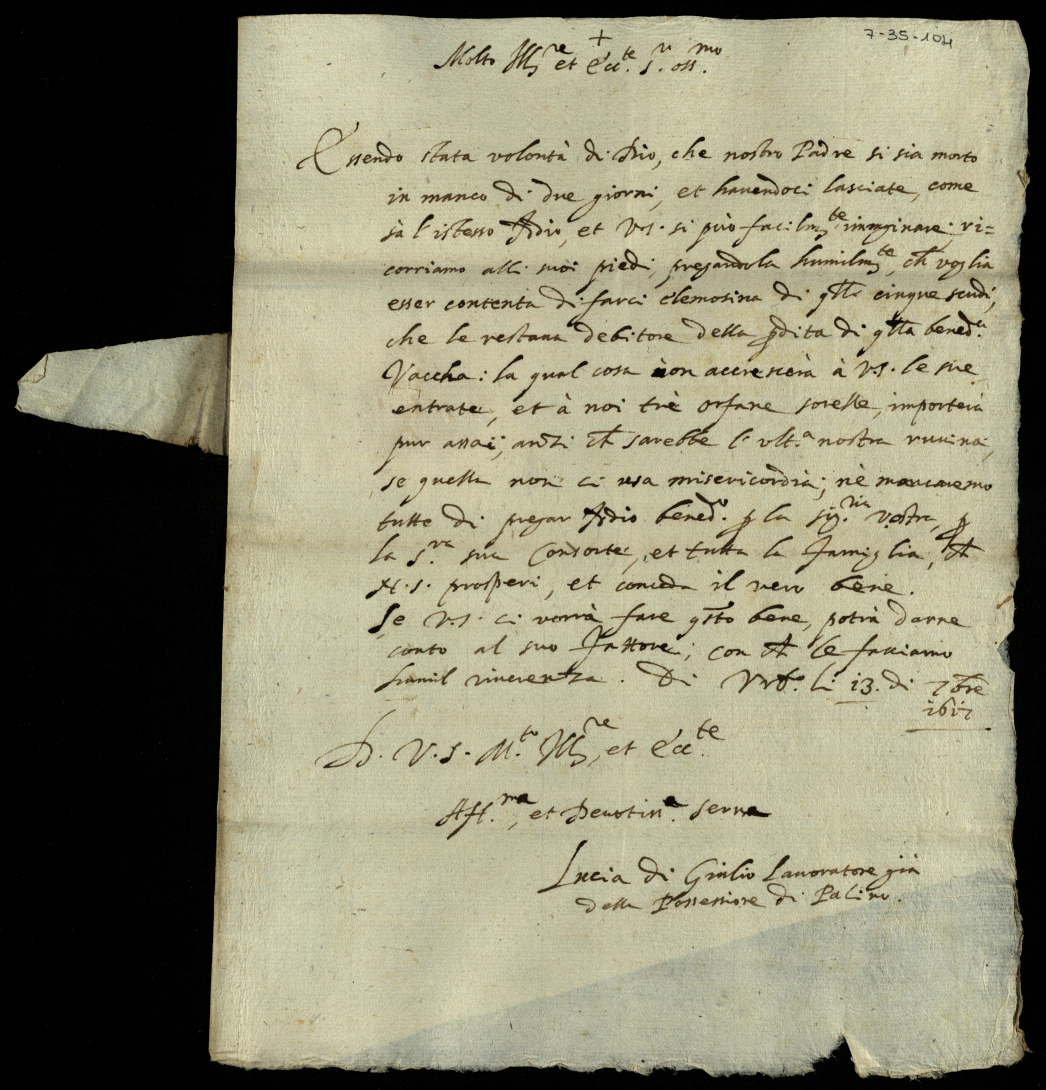 7-35-104
+
Molto Ill.re et Ecc.te S.r oss.mo
Essendo stata volontà di Dio, che nostro Padre si sia morto
in manco di due giorni, et havendoci lasciate, come
sà l'istesso Iddio, et V.S. si può facilm.te immginare; ri=
corriamo alli suoi piedi, pregandola humilm.te, ch voglia
esser contenta di farci elemosina di qlli cinque scudi,
che le restava debitore della pdita di qlla bened.a
Vaccha: la qual cosa non accrescerà à V.S. le sue
entrate, et à noi trè orfane sorelle, importerà
pur assai; anzi ch sarebbe l'ult.a nostra ruuina,
se quella non ci usa misericordia; nè mancaremo
tutte di pregar Iddio bened.o p la Sig.ria Vostra, p
la S.ra sua Consorte, et tutta la famiglia, ch
N.S. prosperi, et conceda il vero bene.
Se V.S. ci vorrà fare qsto bene, potrà darne
conto al suo Fattore; con ch le facciamo
humil riverenza. Di Urb.o li 13. di 7bre
1617
D. V. S. M.to Ill.re, et Ecc.te
Aff.ma, et Devotiss.a serva
Lucia di Giulio Lavoratore già
della Possessione di Palino.